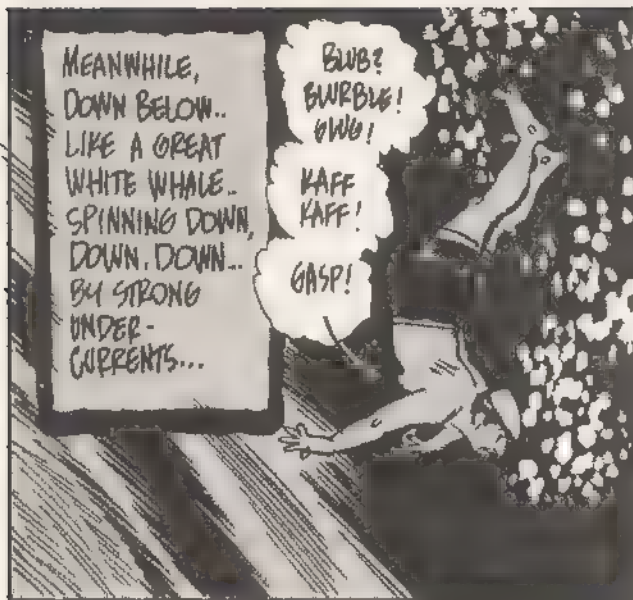 MEANWHILE,
DOWN BELOW..
LIKE A GREAT
WHITE WHALE..
SPINNING DOWN,
DOWN, DOWN...
BY STRONG
UNDER-
CURRENTS...
BLUB?
BLURBLE!
GWG!
KAFF
KAFF!
GASP!